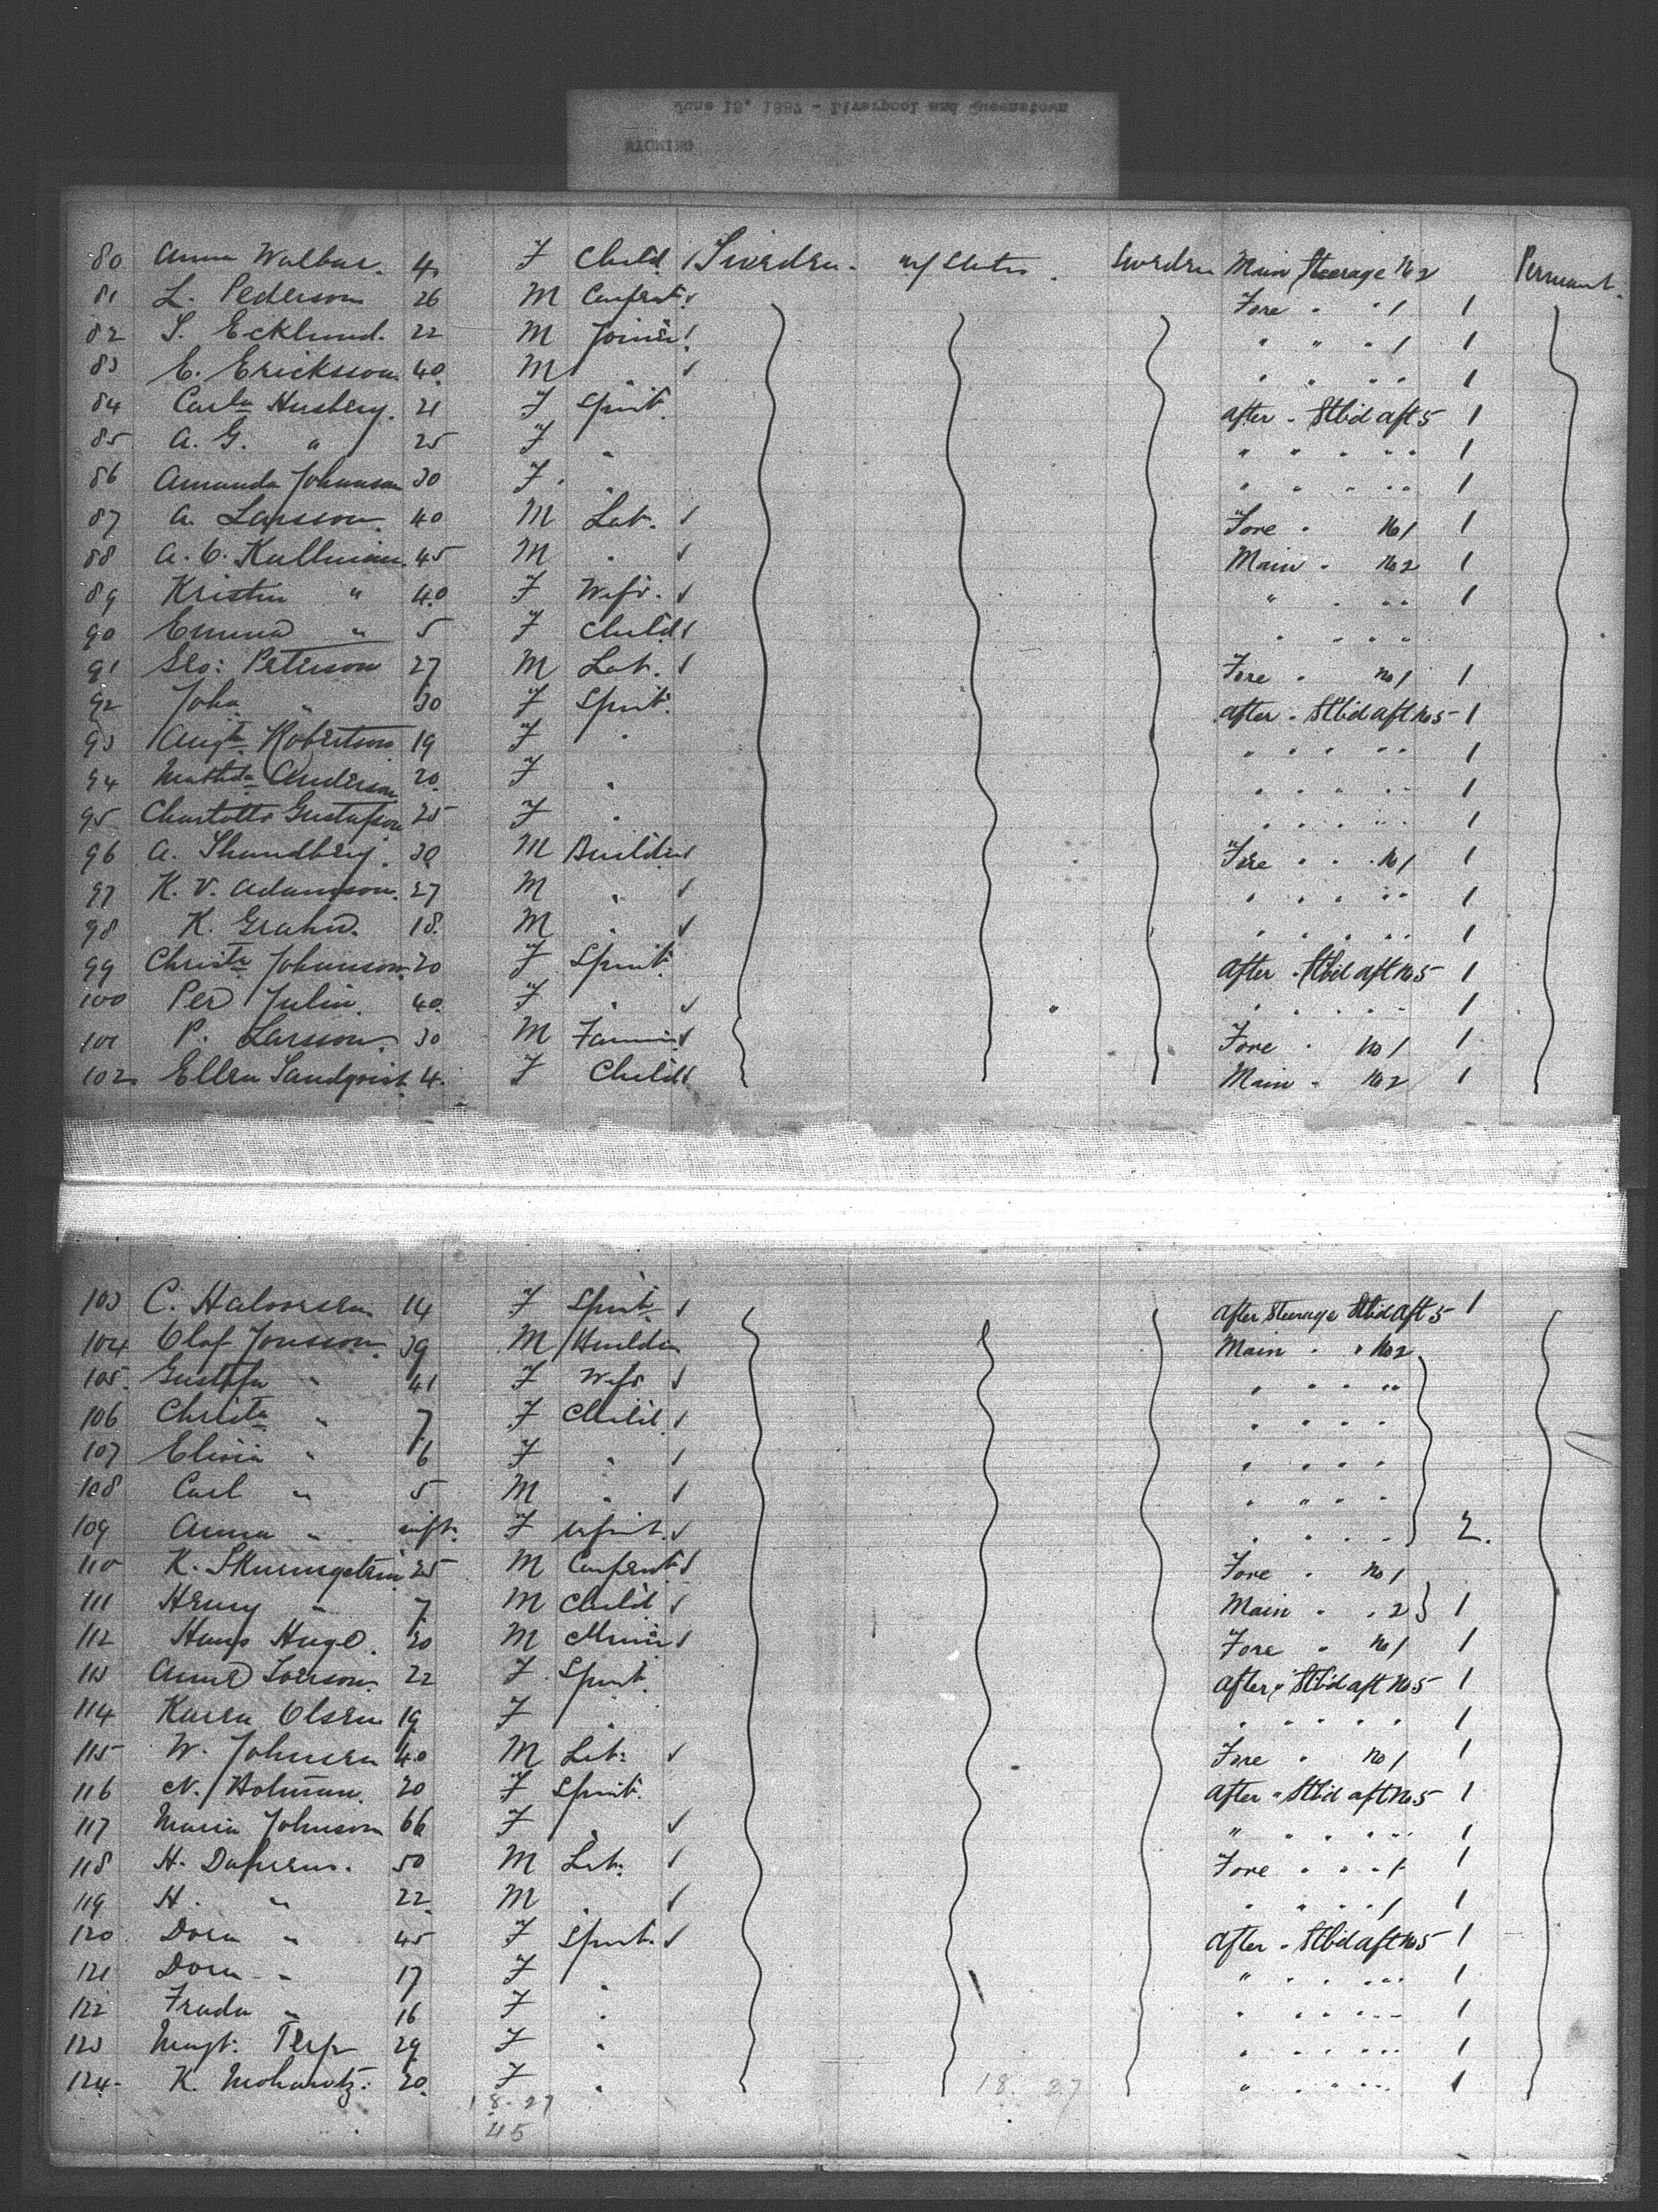 June 15, 1887 - Liverpool and Queenstown
WYOMING
80 Anna Walbur. 4 F Child Sweden. U/States. Sweden Main Steerage No 2 Permant.
81 L. Pederson 26 M Carpent. Fore " " 1 1
82 S. Ecklund. 22 M Joiner " " " 1 1
83 E. Ericksson 40 M " " " " " 1
84 Carla Husberg. 21 F Spint. After " Stbd aft 5 1
85 A. G. " 25 F " " " " " " 1
86 Amanda Johnnson 30 F " " " " " " 1
87 A. Larsson 40 M Lab. Fore " No 1 1
88 A. C. Kullman 45 M " Main " No 2 1
89 Kristin " 40 F Wife. " " " " 1
90 Emma " 5 F Child " " " "
91 Geo: Peterson 27 M Lab. Fore " No 1 1
92 Joha " 30 F Spint. After " Stbd aft No 5 1
93 Augta Robertson 19 F " " " " " " 1
94 Mathda Anderson 20 F " " " " " " 1
95 Charlotte Gustafson 25 F " " " " " " 1
96 A. Shundberg. 30 M Builder Fore " " No 1 1
97 K. V. Adamson. 27 M " " " " " " 1
98 K. Grahn. 18. M " " " " " " 1
99 Christa Johnnson 20 F Spint. After " Stbd aft No 5 1
100 Per Julin. 40. F " " " " " " 1
101 P. Larsson. 30 M Farmer Fore " No 1 1
102 Ellen Sandqvist 4. F Child Main " No 2 1
103 C. Halvorsen 14 F Spint. After Steerage Stbd aft 5 1
104 Olof Jonsson 39 M Builder Main " " No 2
105. Gustafa " 41 F Wife " " " "
106 Christa " 7 F Child " " " "
107 " 6 F " " " " "
108 Carl " 5 M " " " " "
109 Anna " inft. F Infnt. " " " " 2.
110 K. 25 M Carpent Fore " No 1
111 Henry " 7 M Child Main " " 2 1
112 Hans Huge. 20 M Miner Fore " No 1 1
113 Anne Iverson. 22 F Spint. After " Stbd aft No 5 1
114 Karen Olsen 19 F " " " " " " 1
115 W. Johnsen 40 M Lab: Fore " No 1 1
116 N. Holman. 20 F Spint. After " Stbd aft No 5 1
117 Maria Johnson 66 F " " " " " " 1
118 H. 50 M Lab. Fore " " " 1 1
119 H. " 22 M " " " " " 1 1
120 Dora " 45 F Spint. After " Stbd aft No 5 1
121 Dora " 17 F " " " " " " 1
122 Frada " 16 F " " " " " " 1
123 Magt: Terp 29 F " " " " " " 1
124. K. 20. F " " " " " " 1
18. 27 18. 27
45